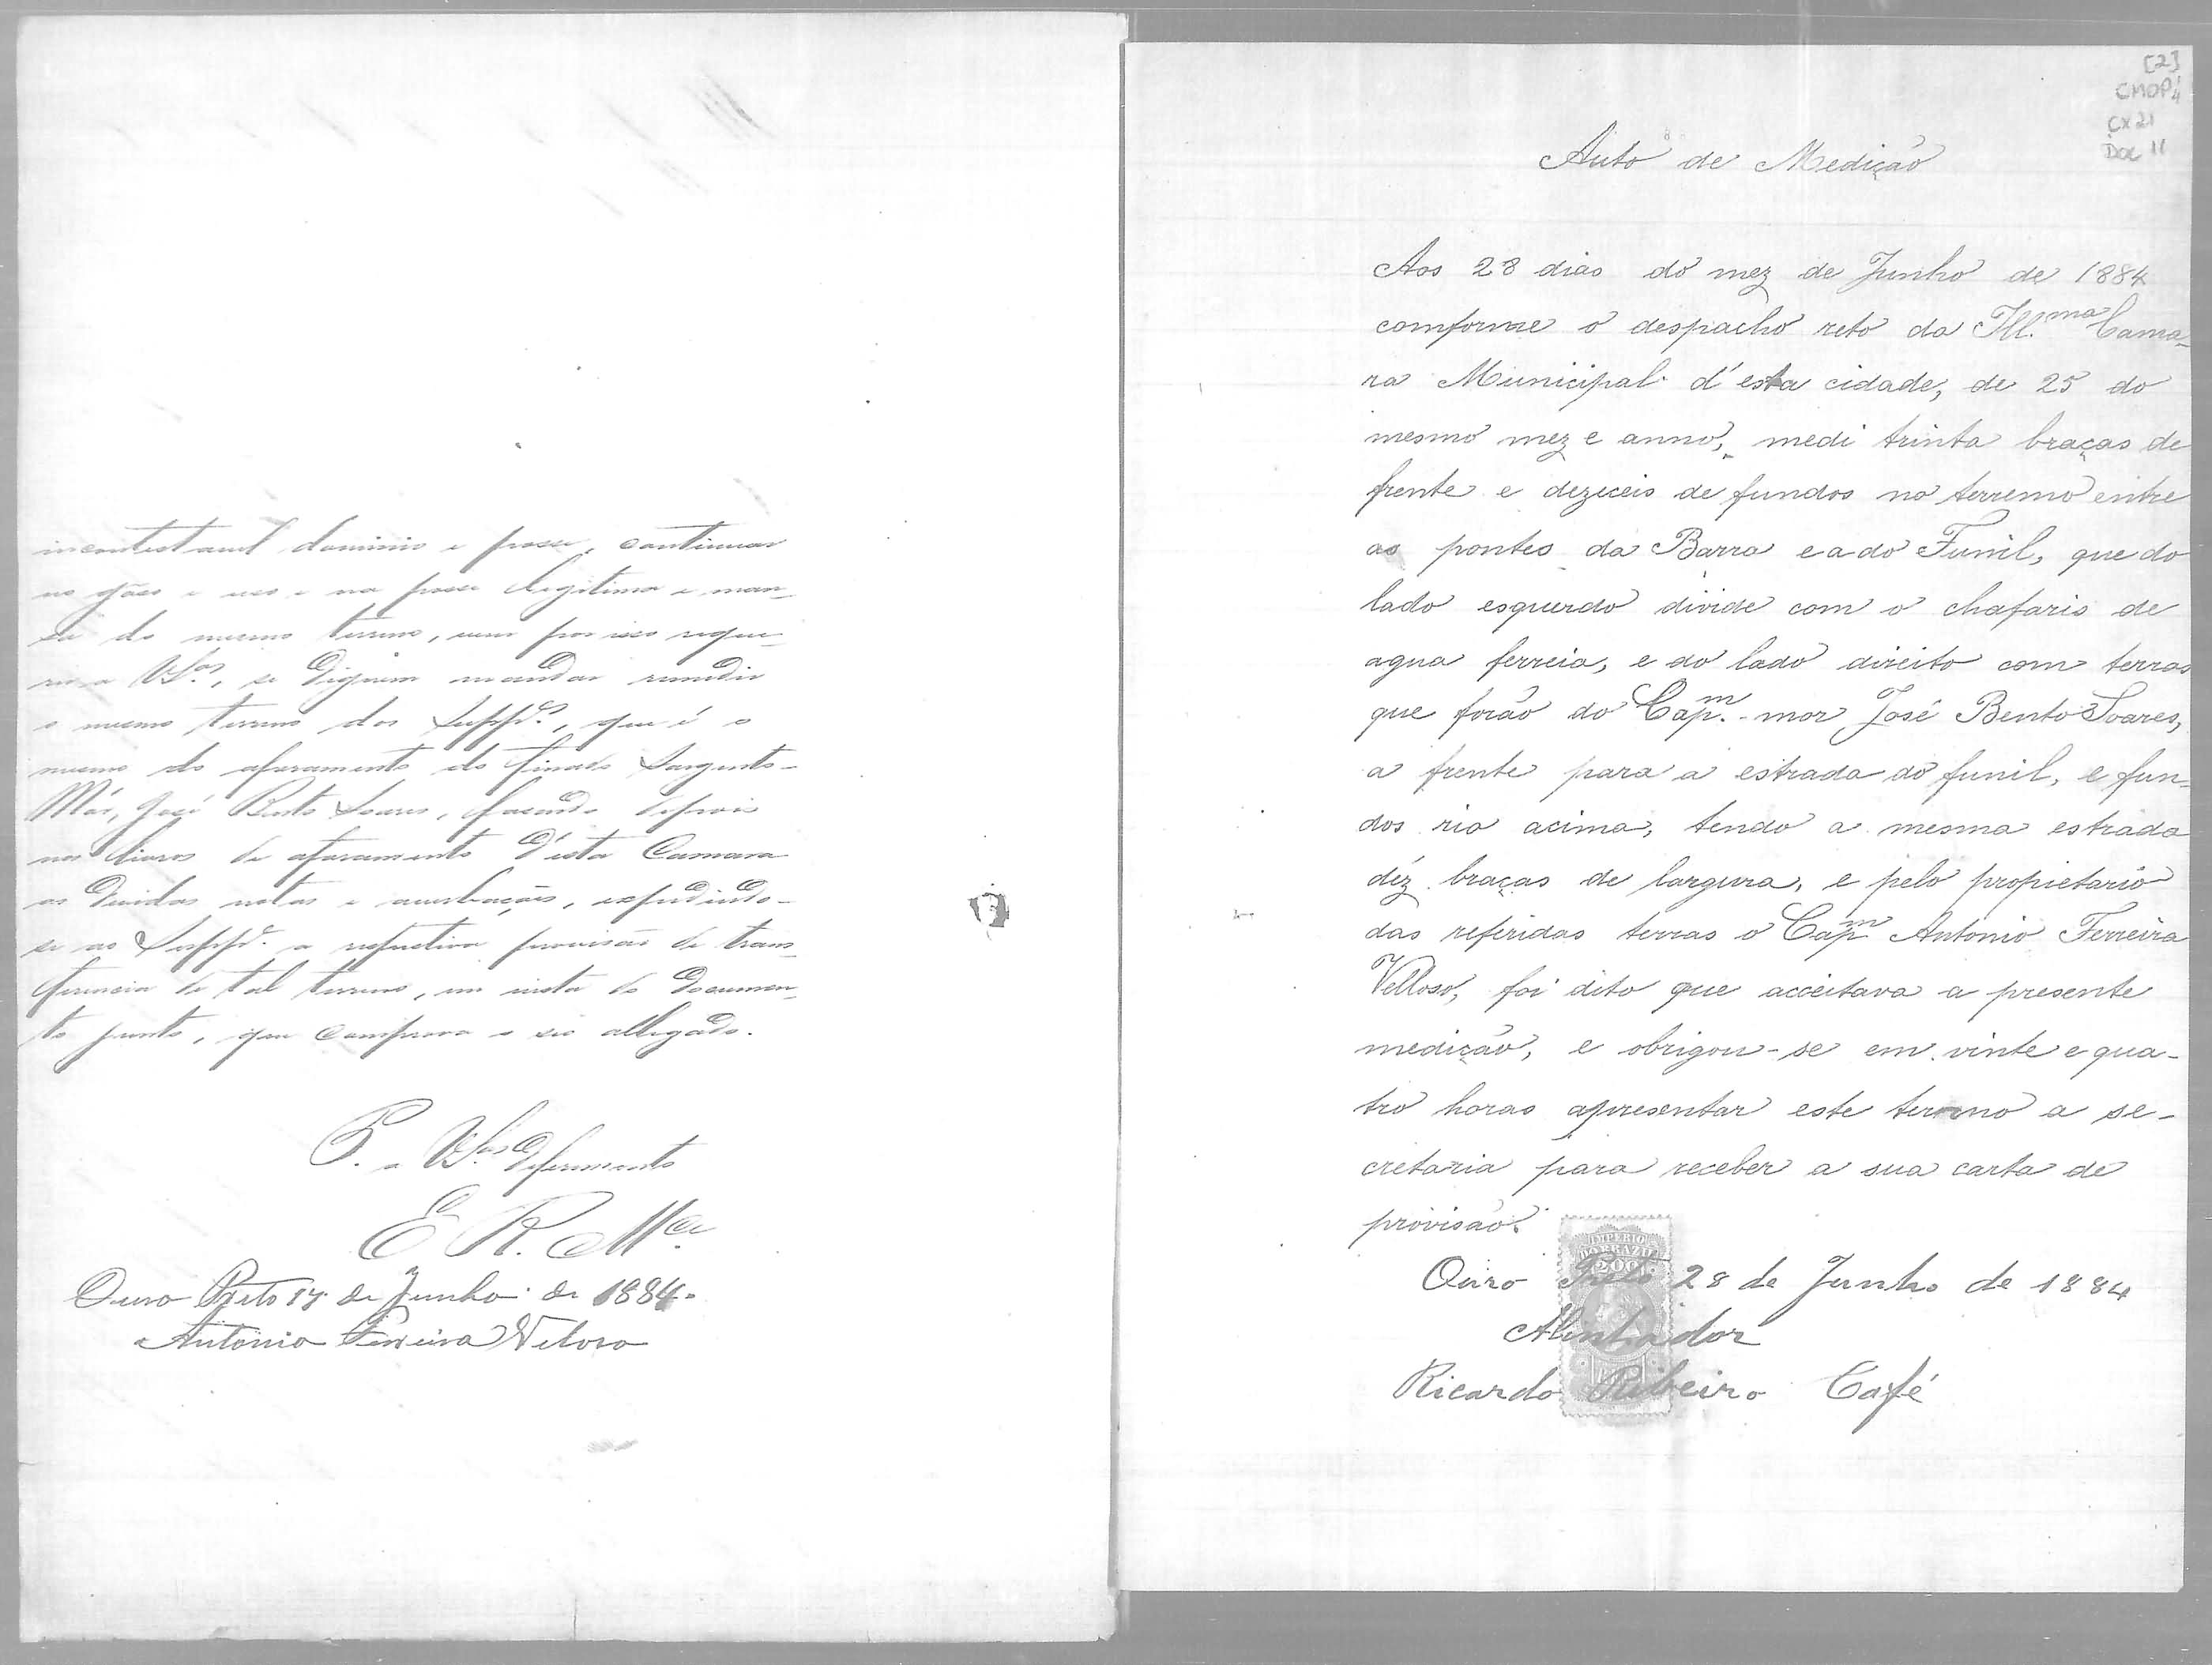 incontestavel dominio e posse, continuar
no gôso e uso e na posse legitima e man-
sa do mesmo terreno, vem por isso reque-
rer a VSas, se dignem mandar remedir
o mesmo terreno dos Suppdos, que é o
mesmo do aforamento do finado Sargento-
Mór, José Bento Soares, fasendo depois
nos livros de aforamento d'esta Camara
as devidas notas e averbações, expedindo-
se ao Suppe. a respectiva provisão de trans-
ferencia de tal terreno, em vista do documen-
to junto, que comprova o seo allegado.
P. a VSas deferimento
E. R. Mce
Ouro Preto 17 de Junho de 1884.
Antonio Ferreira Veloso
[2]
CMOP
CX 21
DOC 11
Auto de Medição
Aos 28 dias do mez de Junho de 1884
comforme o despacho reto da Ill.ma Cama-
ra Municipal d'esta cidade, de 25 do
mesmo mez e anno, medi trinta braças de
frente e dezeceis de fundos no terreno entre
as pontes da Barra e a do Funil, que do
lado esquerdo divide com o chafaris de
agua ferreia, e do lado direito com terras
que forão do Capm.-mor José Bento Soares,
a frente para a estrada do funil, e fun-
dos rio acima, tendo a mesma estrada
déz braças de largura, e pelo propietario
das referidas terras o Capm Antonio Ferreira
Velloso, foi dito que acceitava a presente
medição, e obrigou-se em vinte e qua-
tro horas apresentar este termo a se-
cretaria para receber a sua carta de
provisão.
IMPERIO
DO BRAZIL
200
Ouro Preto 28 de Junho de 1884
Alinhador
Ricardo Ribeiro Café